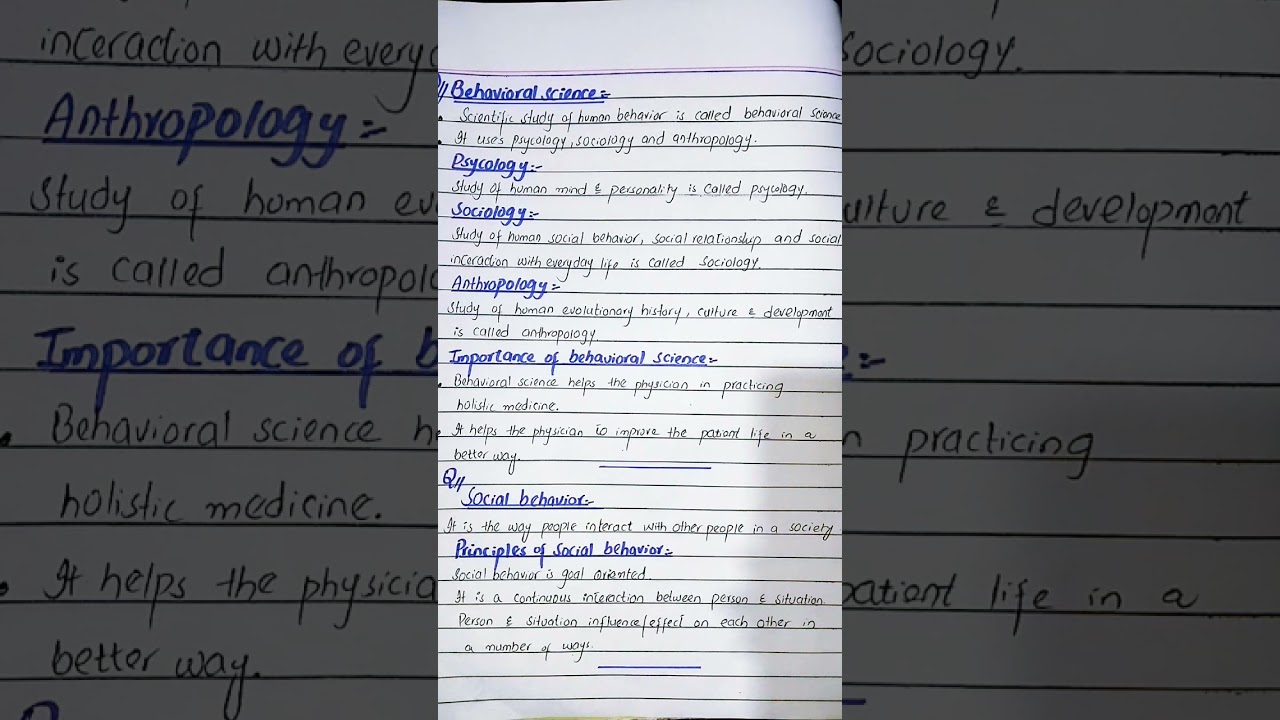 Q// Behavioral science:-
• Scientific study of human behavior is called behavioral science
• It uses psycology, sociology and anthropology.
Psycology:-
Study of human mind & personality is called psycology.
Sociology:-
Study of human social behavior, social relationship and social
interaction with everyday life is called Sociology.
Anthropology:-
Study of human evolutionary history, culture & development
is called anthropology.
Importance of behavioral science:-
• Behavioral science helps the physician in practicing
holistic medicine.
• It helps the physician to improve the patient life in a
better way.
Q//
Social behavior:-
It is the way people interact with other people in a society
Principles of Social behavior:-
Social behavior is goal oriented.
It is a continuous interaction between person & situation
Person & situation influence/effect on each other in
a number of ways.